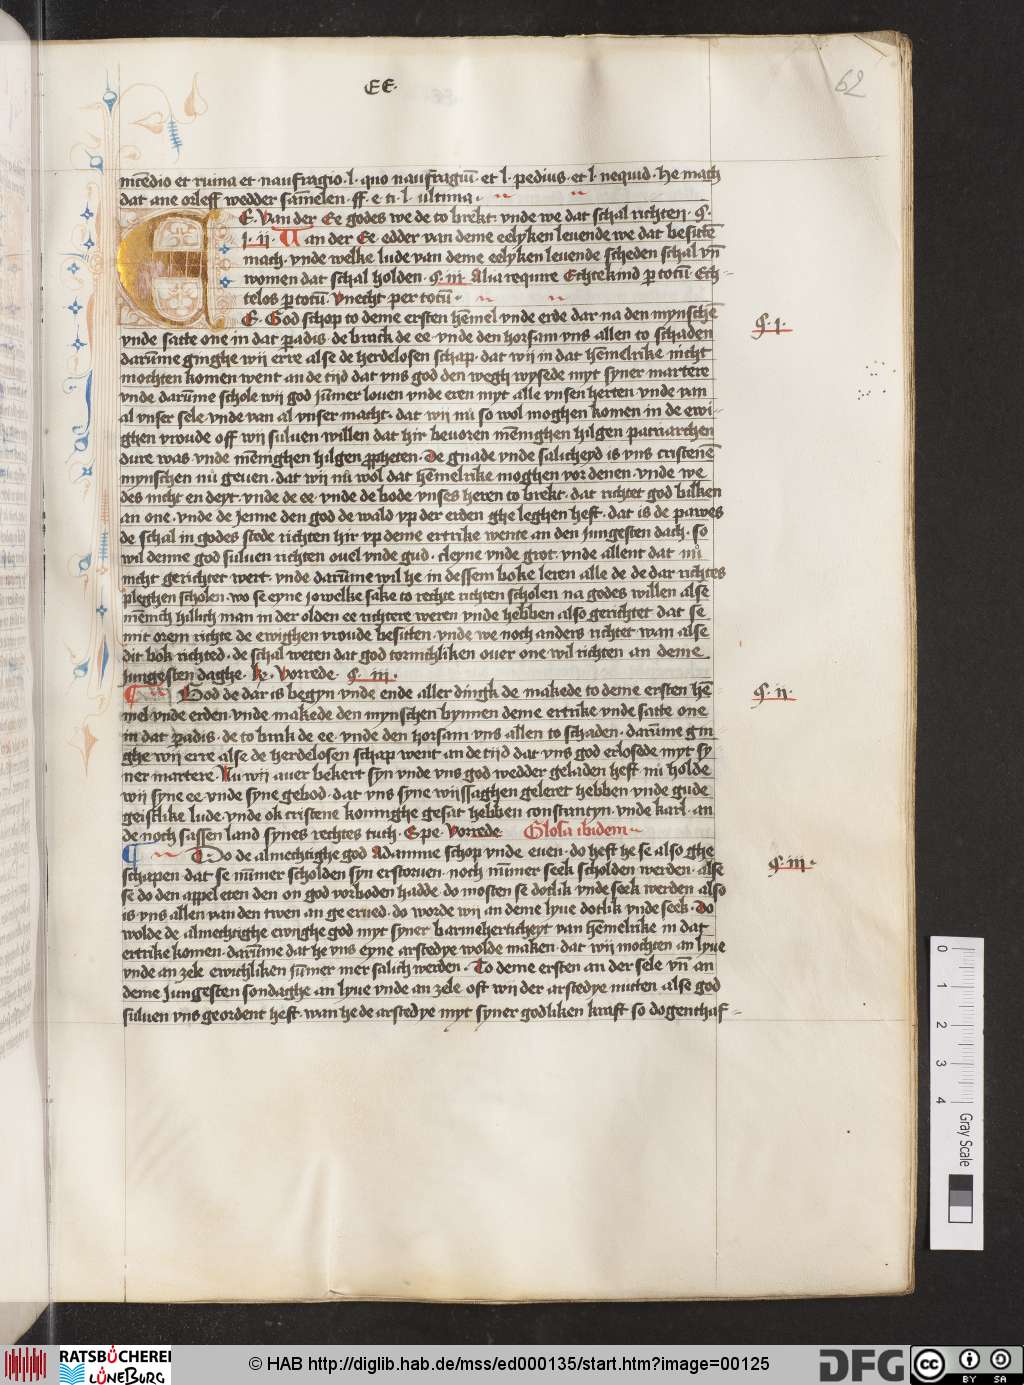 EE·
62
incēdio et ruina et naufragio · l · quo naufragiū · et l · pedius · et l · nequid · he mach
dat ane orleff wedder samelen · ff · e · ti · l · ultima ·
E · Van der Ee · godes we de to brekt · vnde we dat schal richten · §·
j · ij · Uan der Ee · edder van deme eelyken leuende we dat besittē
mach · vnde welke lude van deme eelyken leuende scheden schal vn̄
women dat schal holden · §· iij Alia require Echtekind p totū · Ech-
telos p totū · Vnecht per totū ·
E · God schop to deme ersten hēmel vnde erde dar na den mynschē
§· j ·
vnde satte one in dat padis · de brack de ee · vnde den horsam · vns allen to schaden
darūme ginghe wij erre alse de herdelosen schap · dat wij in dat hēmelrike nicht
mochten komen went an de tijd dat vns god den wegh wysede myt syner martere
vnde darūme schole wij god jūmer louen vnde eren myt alle vnsen herten vnde van
al vnser sele · vnde van al vnser macht · dat wij nu so wol moghen komen in de ewi-
ghen vroude off wij suluen willen dat hir beuoren mēnighen hilgen patriarchen
dure was · vnde mēnighen hilgen ppheten · De gnade vnde salicheyd is vns cristenē
mynschen nu geuen · dat wij nu wol dat hēmelrike moghen vor denen · vnde we
des nicht en deyt · vnde de ee · vnde de bode vnses heren to brekt · dat richtet god bilken
an one · vnde de jenne den god de wald vp der erden ghe leghen heft · dat is de pawes
de schal in godes stede richten hir vp deme ertrike wente an den jungesten dach · so
wil denne god suluen richten ouel vnde gud · cleyne vnde grot · vnde allent dat nu
nicht gerichtet wert · vnde darūme wil he in dessem boke leren alle de de dar richtes
pleghen scholen · wo se eyne jowelke sake to rechte richten scholen na godes willen alse
mēnich hillich man in der olden ee richtere weren vnde hebben also gerichtet dat se
mit orem richte de ewighen vroude besitten · vnde we noch anders richtet wan alse
dit bok richted · de schal weten dat god tornichliken ouer one wil richten an deme
jungesten daghe · k · Vorrede · §· iij ·
God de dar is begyn vnde ende aller dingk de makede to deme ersten hē
§· ij ·
mel vnde erden · vnde makede den mynschen bynnen deme ertrike vnde satte one
in dat padis · de to brak de ee · vnde den horsam vns allen to schaden · darūme gin
ghe wij erre alse de herdelosen schap went an de tijd dat vns god erlosede myt sy
ner martere · Nu wij auer bekert syn vnde vns god wedder geladen heft · nu holde
wij syne ee · vnde syne gebod · dat vns syne wijssaghen geleret hebben vnde gude
geistlike lude · vnde ok cristene koninghe gesat hebben constantyn · vnde karl · an
de noch sassen land synes rechtes tuch · E · pe · Vorrede · Glosa ibidem
Do de almechtighe god Adamme schop vnde euen · do heft he se also ghe
§· iij ·
schapen dat se nūmer scholden syn erstoruen · noch nūmer seek scholden werden · alse
se do den appel eten den on god vorboden hadde · do mosten se dotlik vnde seek werden also
is vns allen van den twen an ge erued · do worde wij an deme lyue dotlik vnde seek · Do
wolde de almechtighe ewighe god myt syner barmeherticheyt van hēmelrike in dat
ertrike komen · darūme dat he vns eyne arstedye wolde maken · dat wij mochten an lyue
vnde an zele ewichliken jūmer mer salich werden · To deme ersten an der sele vn̄ an
deme jungesten sondaghe an lyue vnde an zele oft wij der arstedye nutten alse god
suluen vns geordent heft · wan he de arstedye myt syner godliken kraft so dogenthaf-
0 1 2 3 4
Gray Scale
RATSBÜCHEREI
LÜNEBURG
© HAB http://diglib.hab.de/mss/ed000135/start.htm?image=00125
DFG
cc BY SA